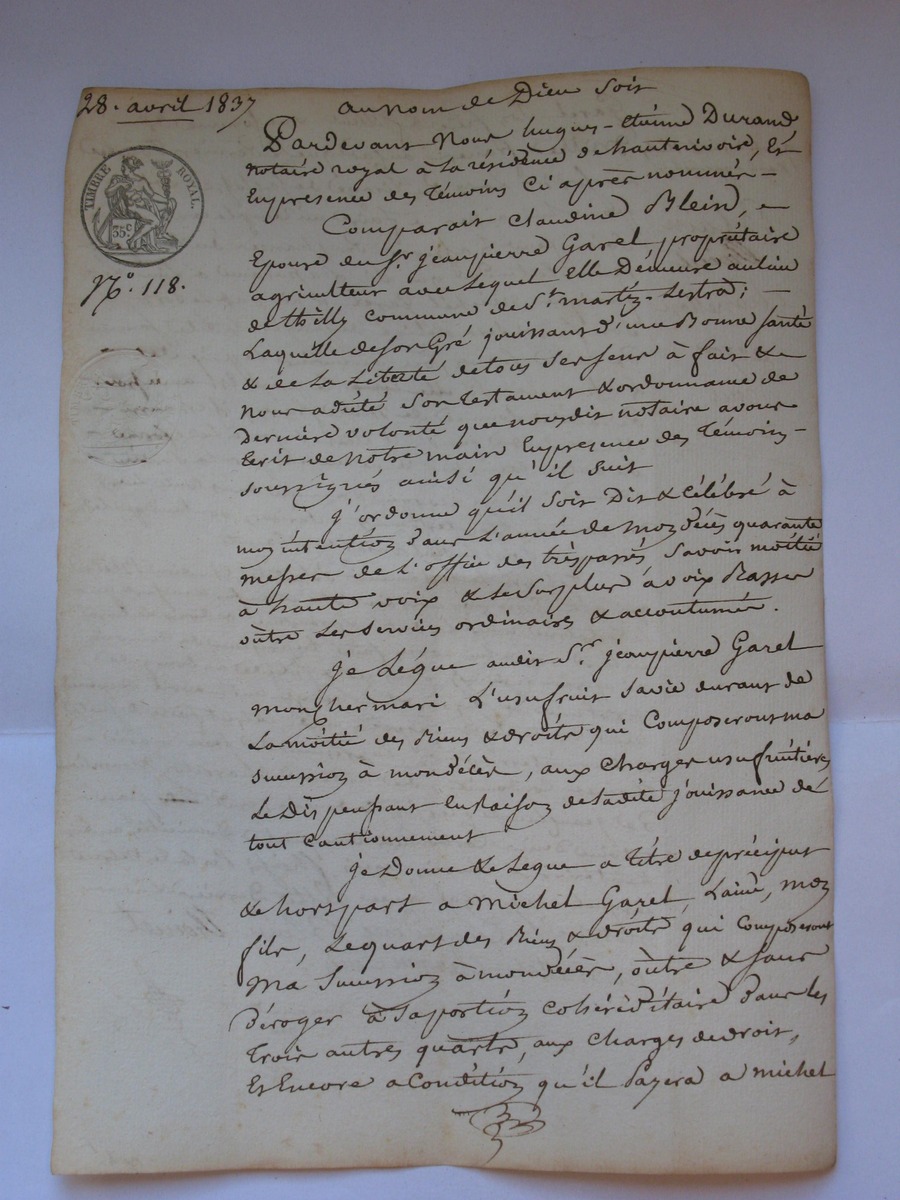 28. avril 1837
au nom de Dieu soit
TIMBRE ROYAL.
35c
No. 118.
Pardevant Nous hugues-etienne Durand
notaire royal à la résidence de hauterivoire, Et
En presence des témoins ci après nommés -
Comparait Claudine Blein, -
Epouse du Sr. jeanpierre Garel propriétaire
agriculteur avec Lequel Elle Démeure au lieu
de thilly commune de St. martin-Lestra; -
Laquelle de son Gré jouissant d'une Bonne santé
& de la Liberté de tous ses sens à fait &
nous a dicté son testament & ordonnance de
Derniere volonté que nousdit notaire avons
Ecrit de notre main En presence des témoins -
soussignés ainsi qu'il suit
j'ordonne qu'il soit Dit & célébré à
mon intention dans L'année de mon décès quarante
messes de L'office des trèspassés, Savoir moitié
à haute voix & le surplus à voix Basse
oûtre Les services ordinaires & accoutumés.
je Légue audit Sr. jeanpierre Garel
mon cher mari L'usufruit sa vie durant de
La moitié des Biens & droits qui composeront ma
succession à mon décès, aux charges usufruitières
Le Dispensant En raison de ladite jouissance de
tout cautionnement
je Donne & Legue a titre de préciput
& hors part a Michel Garel, L'ainé, mon
fils, Le quart des Biens & droits qui composeront
Ma succession à mon décès, oûtre & sans
déroger à sa portion cohéréditaire dans les
trois autres quarts, aux charges de droit,
Et Encore a Condition qu'il Payera a Michel